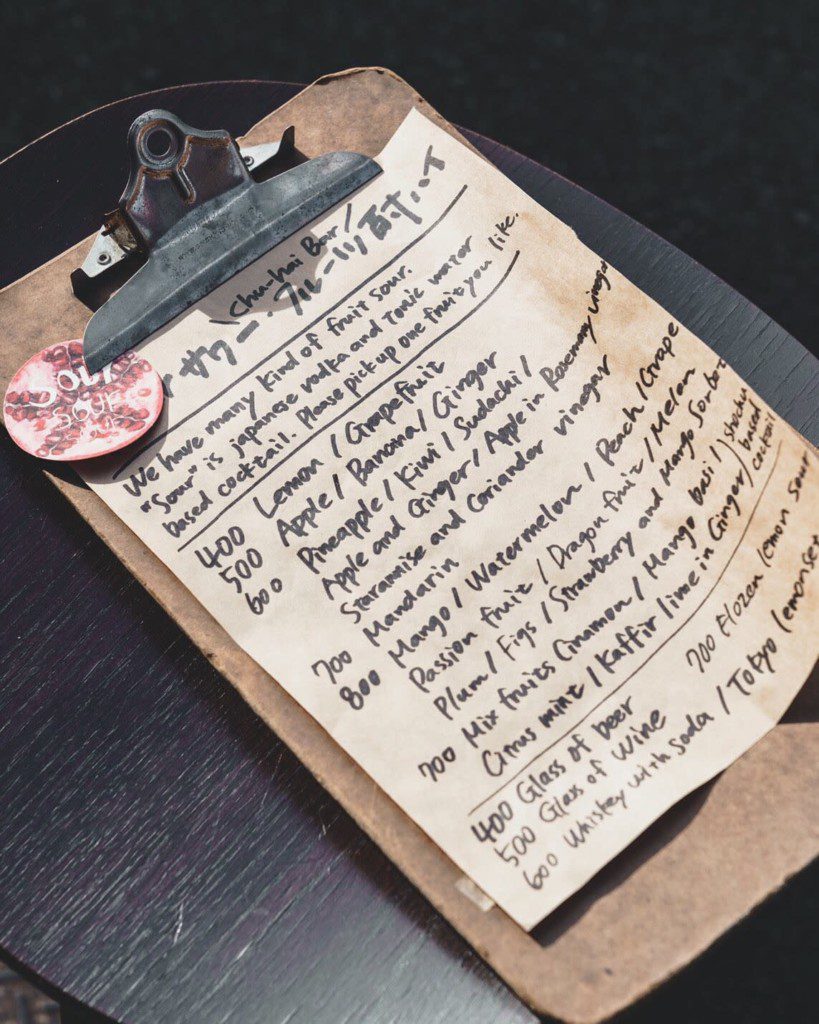 \Chu-hai Bar/
サワー・フルーツ酎ハイ
We have many kind of fruit sour.
"Sour" is japanese vodka and tonic water
based cocktail. Please pick up one fruit you like.
400 Lemon / Grapefruit
500 Apple / Banana / Ginger
600 Pineapple / Kiwi / Sudachi /
Apple and Ginger / Apple in Rosemary vinegar
Staranise and Coriander vinegar
700 Mandarin
800 Mango / Watermelon / Peach / Grape
Passion fruit / Dragon fruit / Melon
Plum / Figs / Strawberry and Mango Sorbet
700 Mix fruits Cinamon / Mango basi / shochu
Citrus mint / Kaffir lime in Ginger based
cocktail
700 Flozen lemon sour
400 Glass of beer
500 Glass of wine
600 Whiskey with soda / Tokyo lemonset
SOUR
SOUR